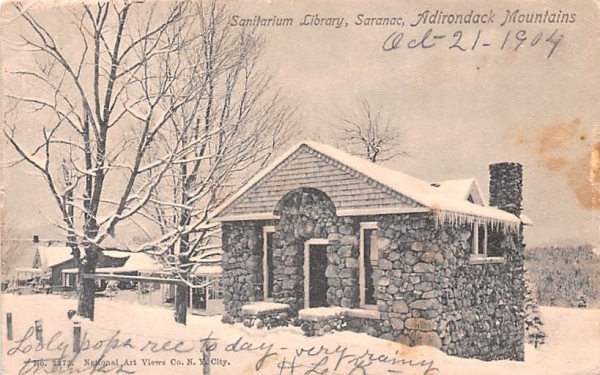 Sanitarium Library, Saranac, Adirondack Mountains
Oct 21-1904
Lolly pops rec to day - very rainy
No. 1172. National Art Views Co. N. Y. City.